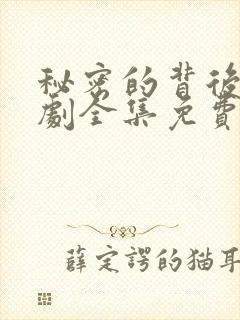 秘密的背後
劇全集免費
薛定諤的猫耳